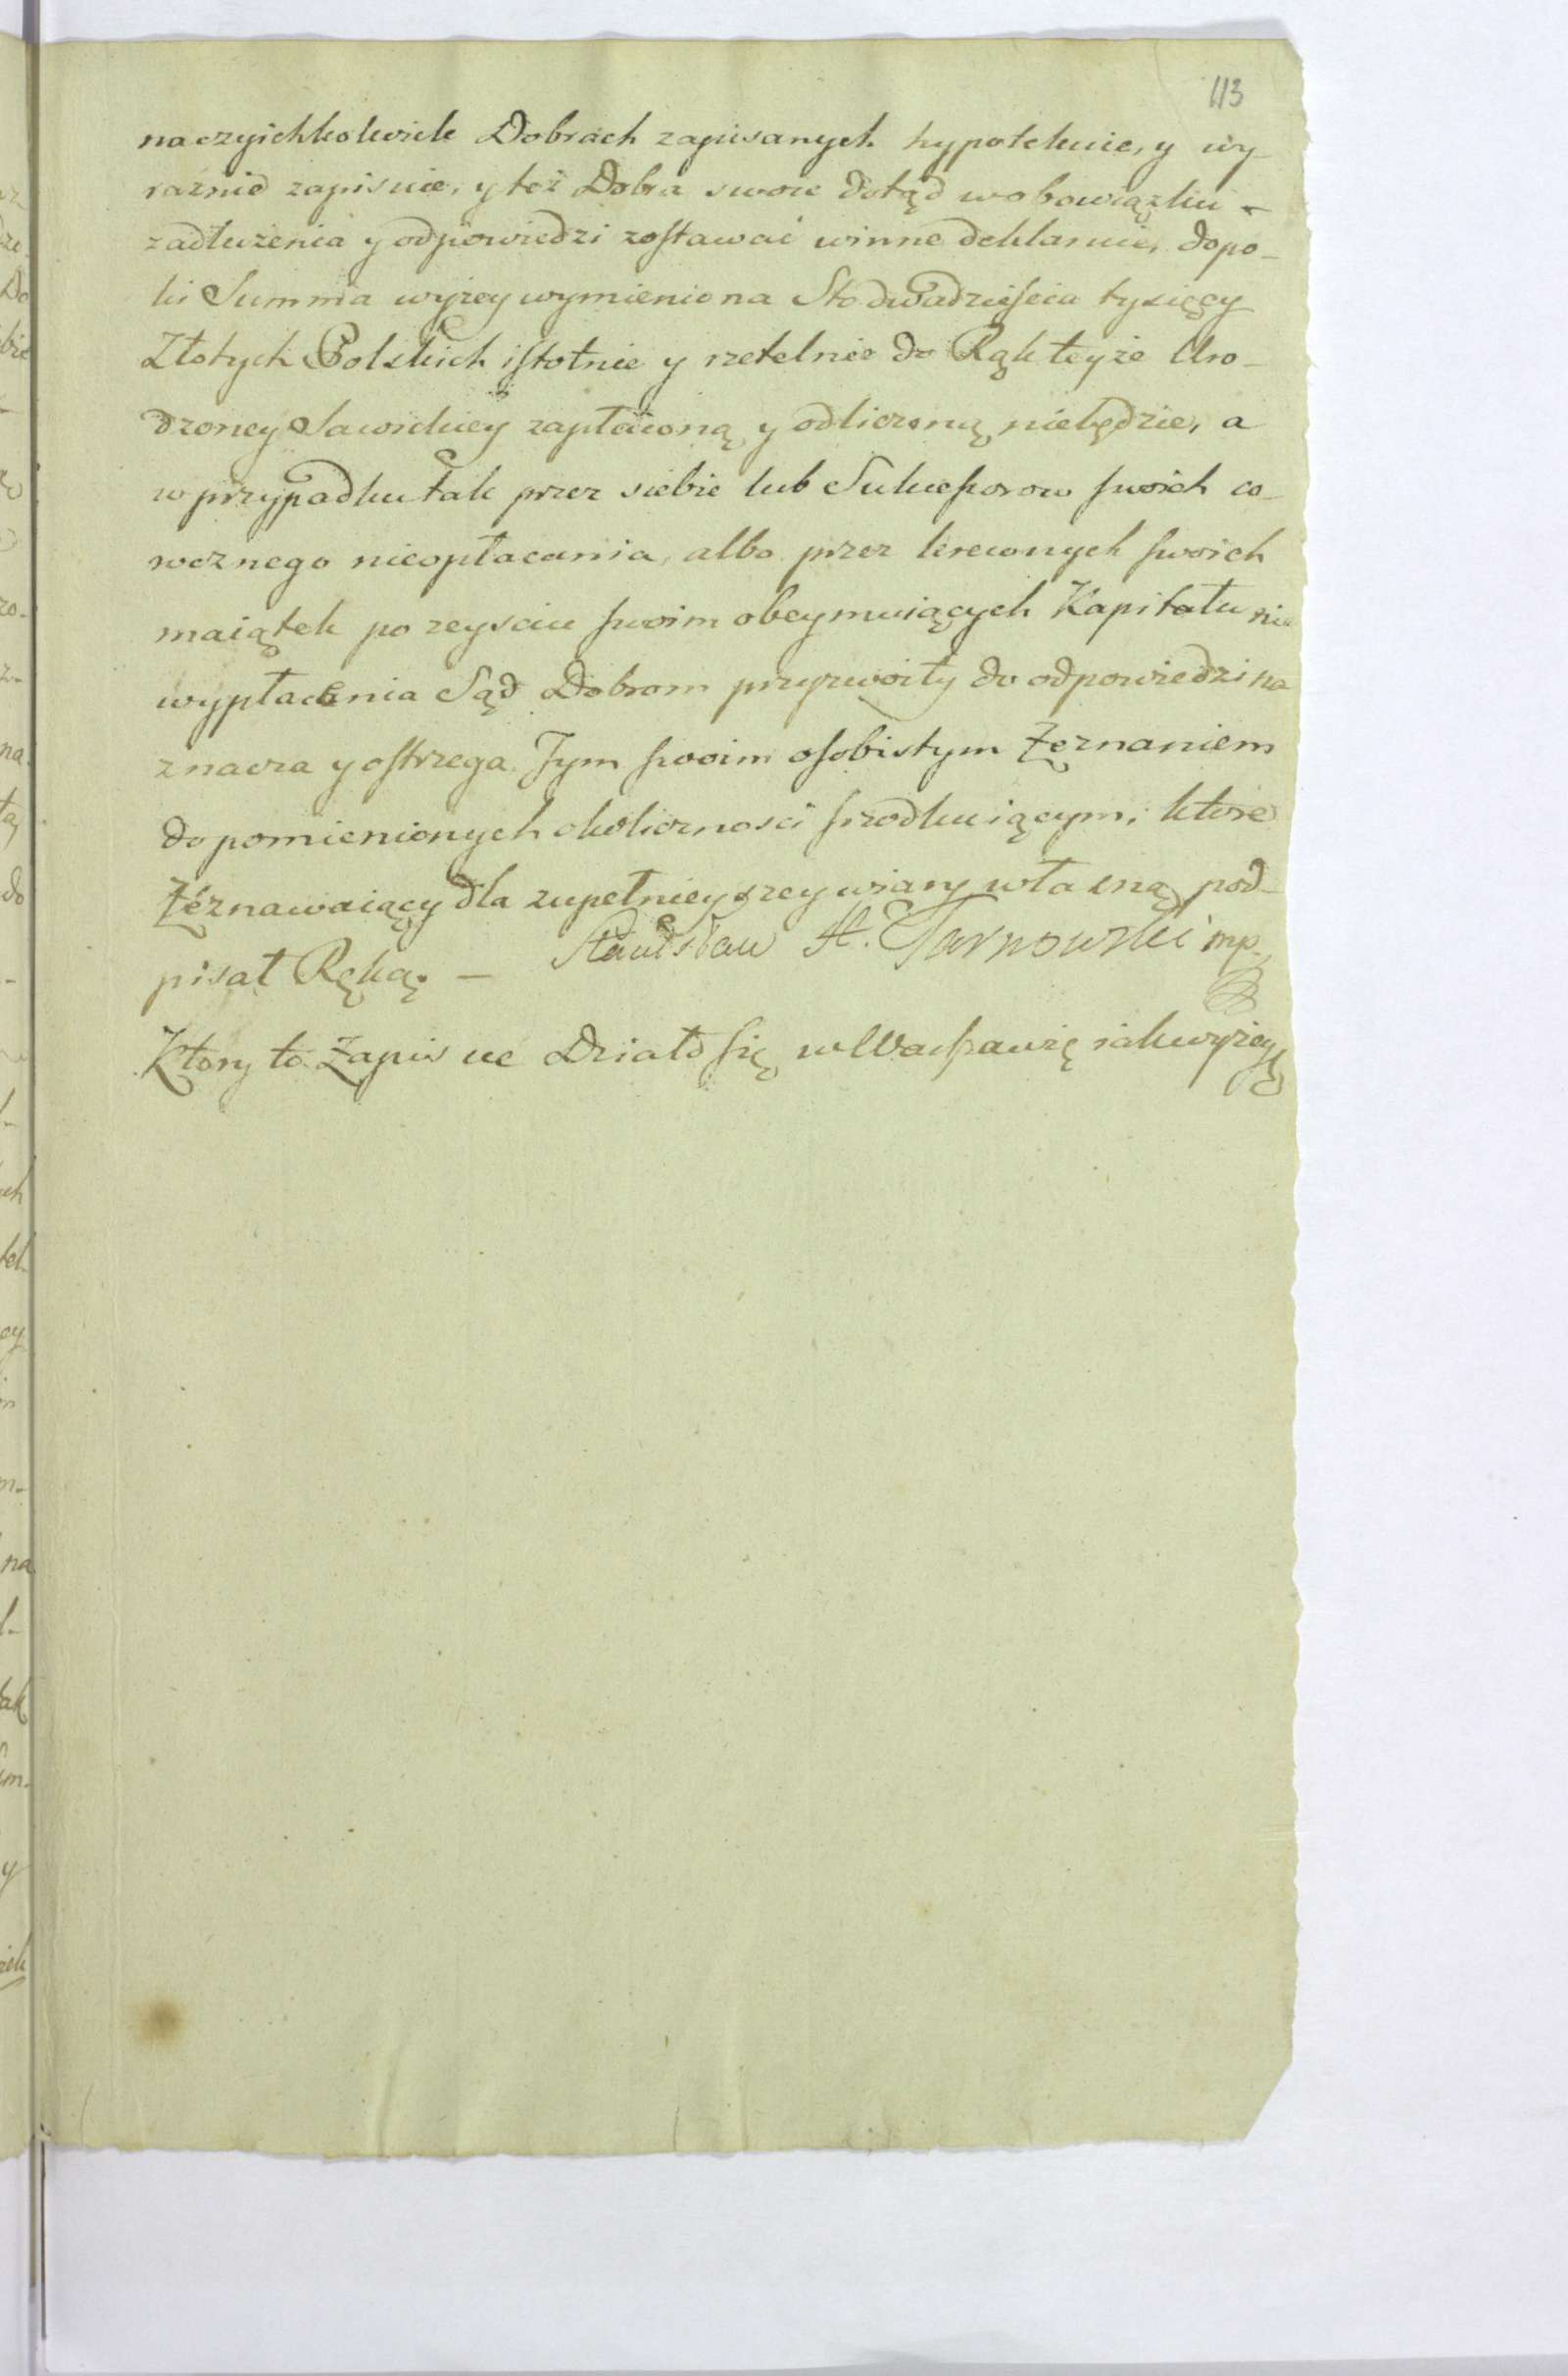 113
na czyichkolwiek Dobrach zapisanych hypotekuie, y wy-
raźnie zapisuie, y też Dobra swoie dotąd w obowiązku -
zadłużenia y odpowiedzi zostawać winne deklaruie, dopo-
ki Summa wyżey wymieniona Sto dwadzieścia tysięcy
Złotych Polskich istotnie y rzetelnie do Rąk teyże Uro-
dzoney Sawickiey zapłaconą y odliczoną niebędzie, a
w przypadku tak przez siebie lub Sukcessorow swoich co-
rocznego nieopłacania, albo przez krewnych swoich
maiątek po zeysciu swoim obeymuiących Kapitału nie
wypłacenia Sąd Dobrom przyzwoity do odpowiedzi na
znacza y ostrzega Tym swoim osobistym Zeznaniem
do pomienionych okolicznosci srzodkuiącym, ktore
Zeznawaiący dla zupełnieyszey wiary własną pod-
pisał Ręką. - Stanisław H. Tarnowski mp.
Ktory to Zapis ... Działo się w Warszawie iak wyżey